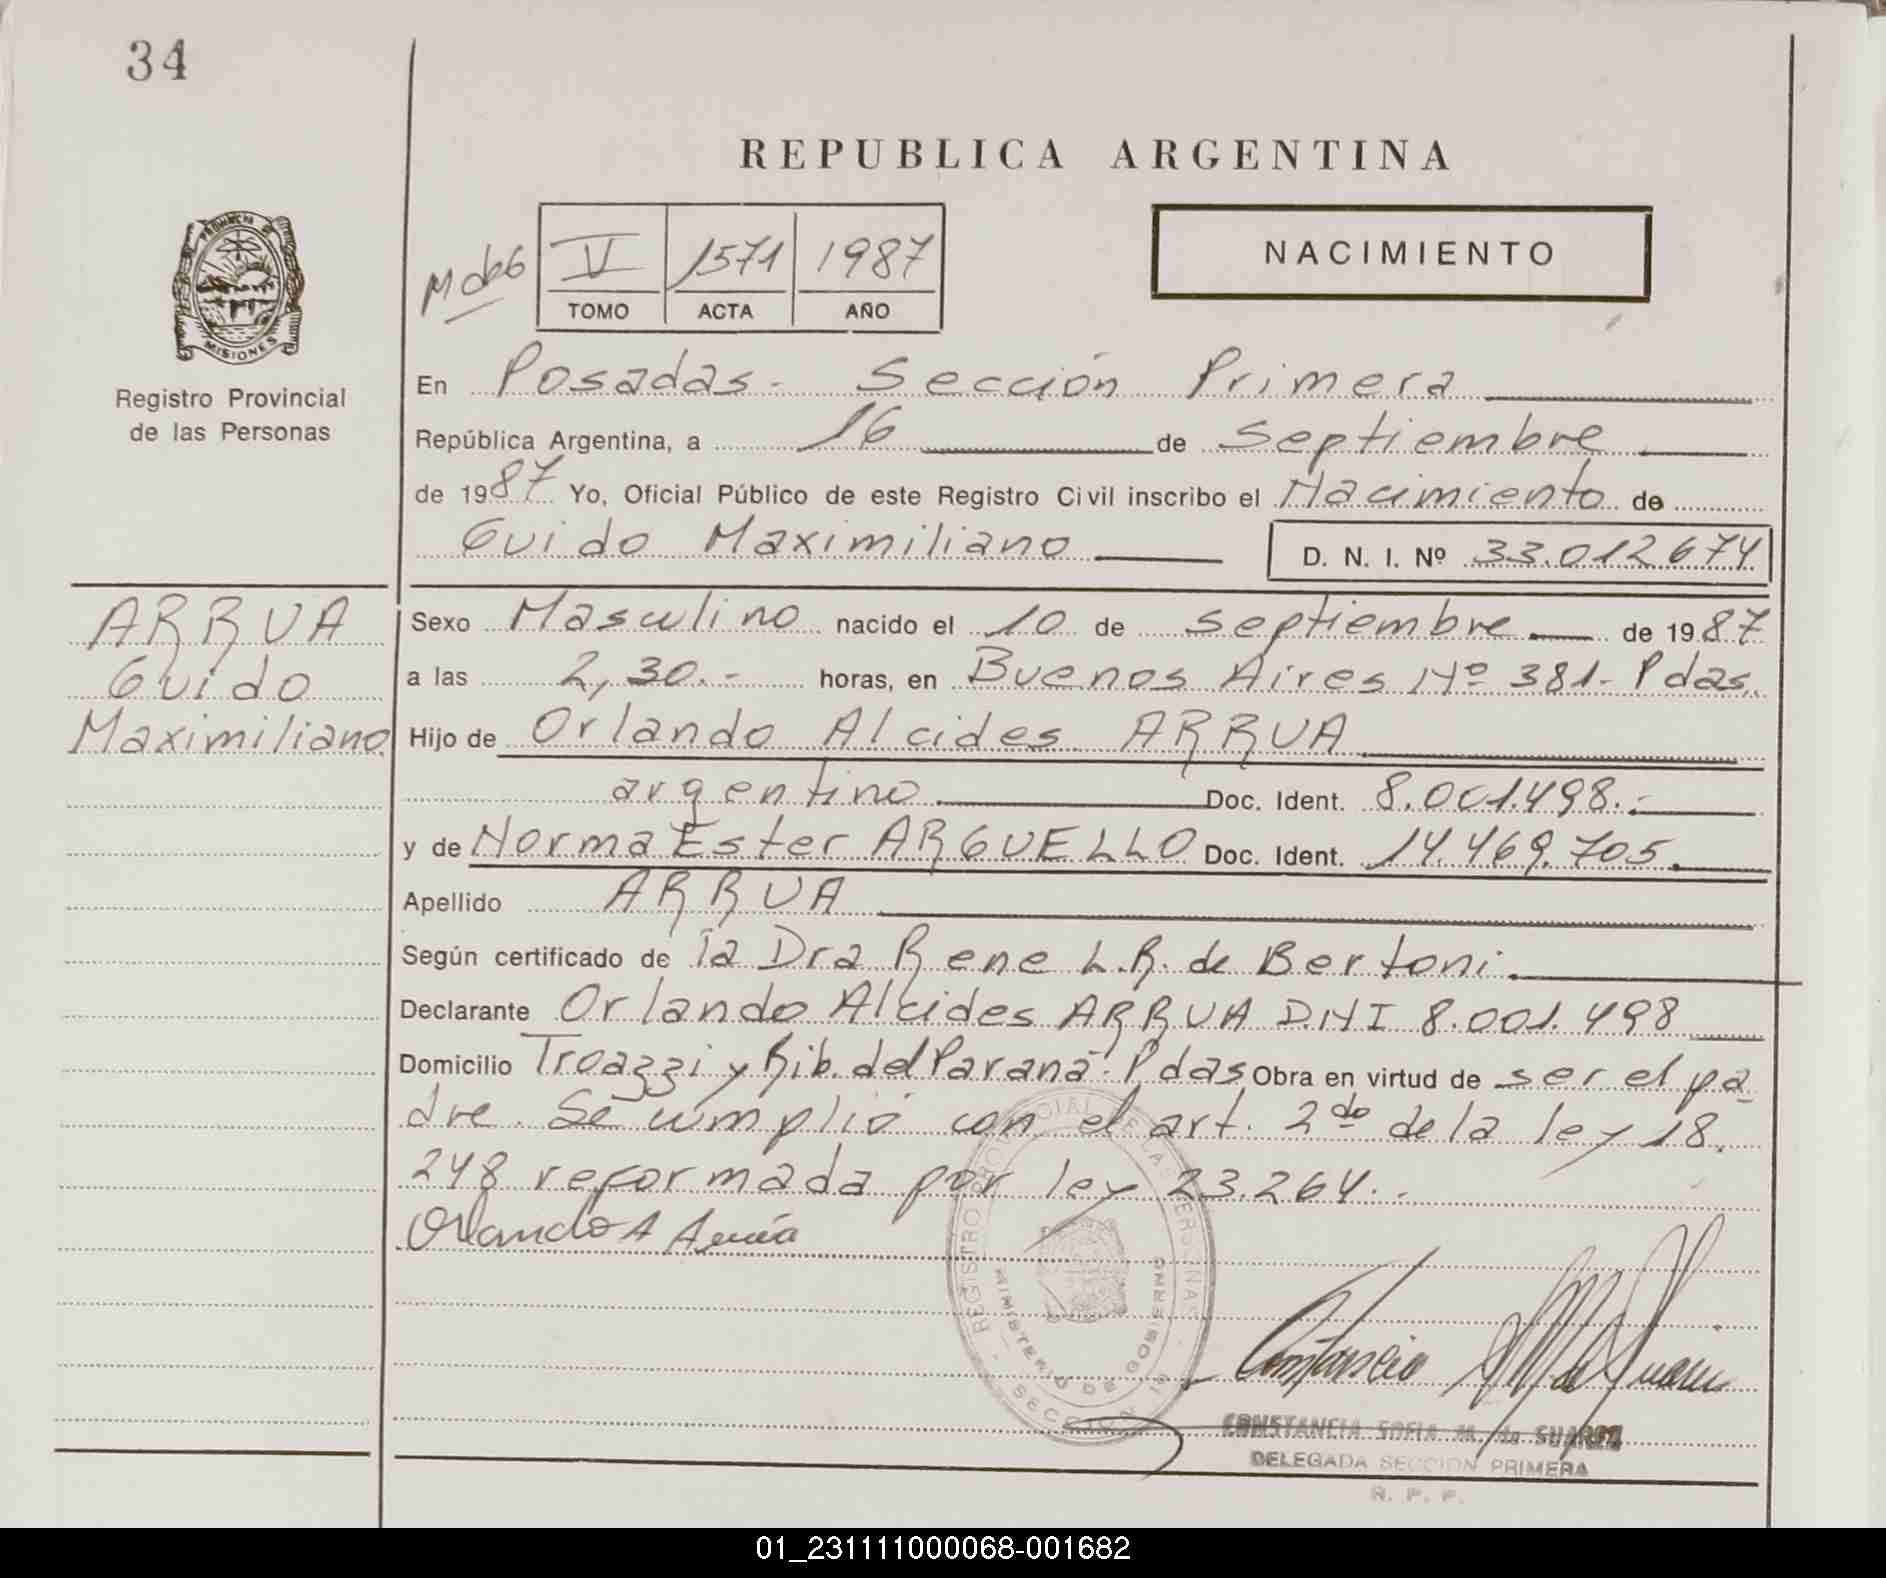 34
REPUBLICA ARGENTINA
NACIMIENTO
V 1571 1987
TOMO ACTA AÑO
PROVINCIA DE
MISIONES
Registro Provincial
de las Personas
En Posadas - Sección Primera
República Argentina, a 16 de Septiembre
de 1987 Yo, Oficial Público de este Registro Civil inscribo el Nacimiento de
Guido Maximiliano D. N. I. Nº 33.012674
ARRUA
Guido
Maximiliano
Sexo Masculino nacido el 10 de septiembre de 1987
a las 2,30.- horas, en Buenos Aires Nº 381- Pdas.
Hijo de Orlando Alcides ARRUA
argentino Doc. Ident. 8.001.498.-
y de Norma Ester ARGUELLO Doc. Ident. 14.469.705.
Apellido ARRUA
Según certificado de la Dra Rene L.R. de Bertoni.
Declarante Orlando Alcides ARRUA D.NI 8.001.498
Domicilio Troazzi y Rib. del Paraná - Pdas Obra en virtud de ser el pa
dre. Se cumplió con el art. 2do de la ley 18.
248 reformada por ley 23.264.-
Orlando A Arrúa
REGISTRO PROVINCIAL DE LAS PERSONAS
MINISTERIO DE GOBIERNO
SECCION 1ª
CONSTANCIA SOFIA M. de SUAREZ
DELEGADA SECCION PRIMERA
R. P. P.
01_231111000068-001682